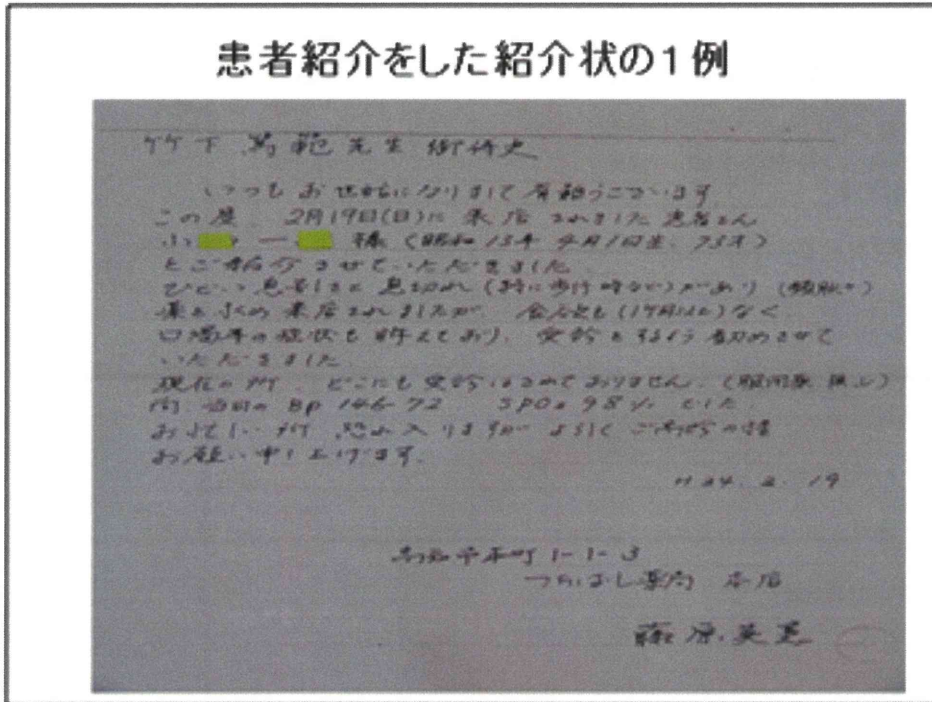 患者紹介をした紹介状の1例
竹下 篤範 先生 御侍史
いつもお世話になりまして有難うございます
この度、2月19日(日)に来店されました患者さん
一 様(昭和13年4月1日生、73才)
をご紹介させていただきました。
ひどい息苦しさと息切れ(特に歩行時など)があり(頻脈
薬を求め来店されましたが、
の症状も訴えており、受診をするよう勧めさせて
いただきました
現在の所、どこにも受診はされておりません。(服用薬 無し)
尚、当日のBp 146-72 SPO₂ 98% でした
お忙しい所、恐れ入りますが よろしくご高診の程
お願い申し上げます。
H24.2.19
高知市本町1-1-3
つちばし薬局 本店
藤原英